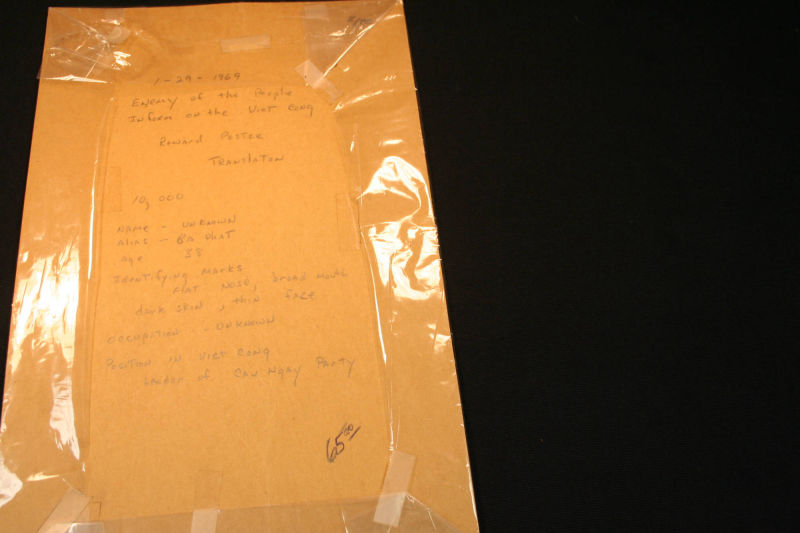 1-29-1969
Enemy of the People
Inform on the Viet Cong
Reward Poster
Translaton
10,000
Name - Unknown
Alias - Ba Phat
Age 38
Identifying Marks
Flat Nose, broad mouth
dark skin, thin face
occupation - Unknown
Position in Viet Cong
Leader of Can Ngay Party
65.00